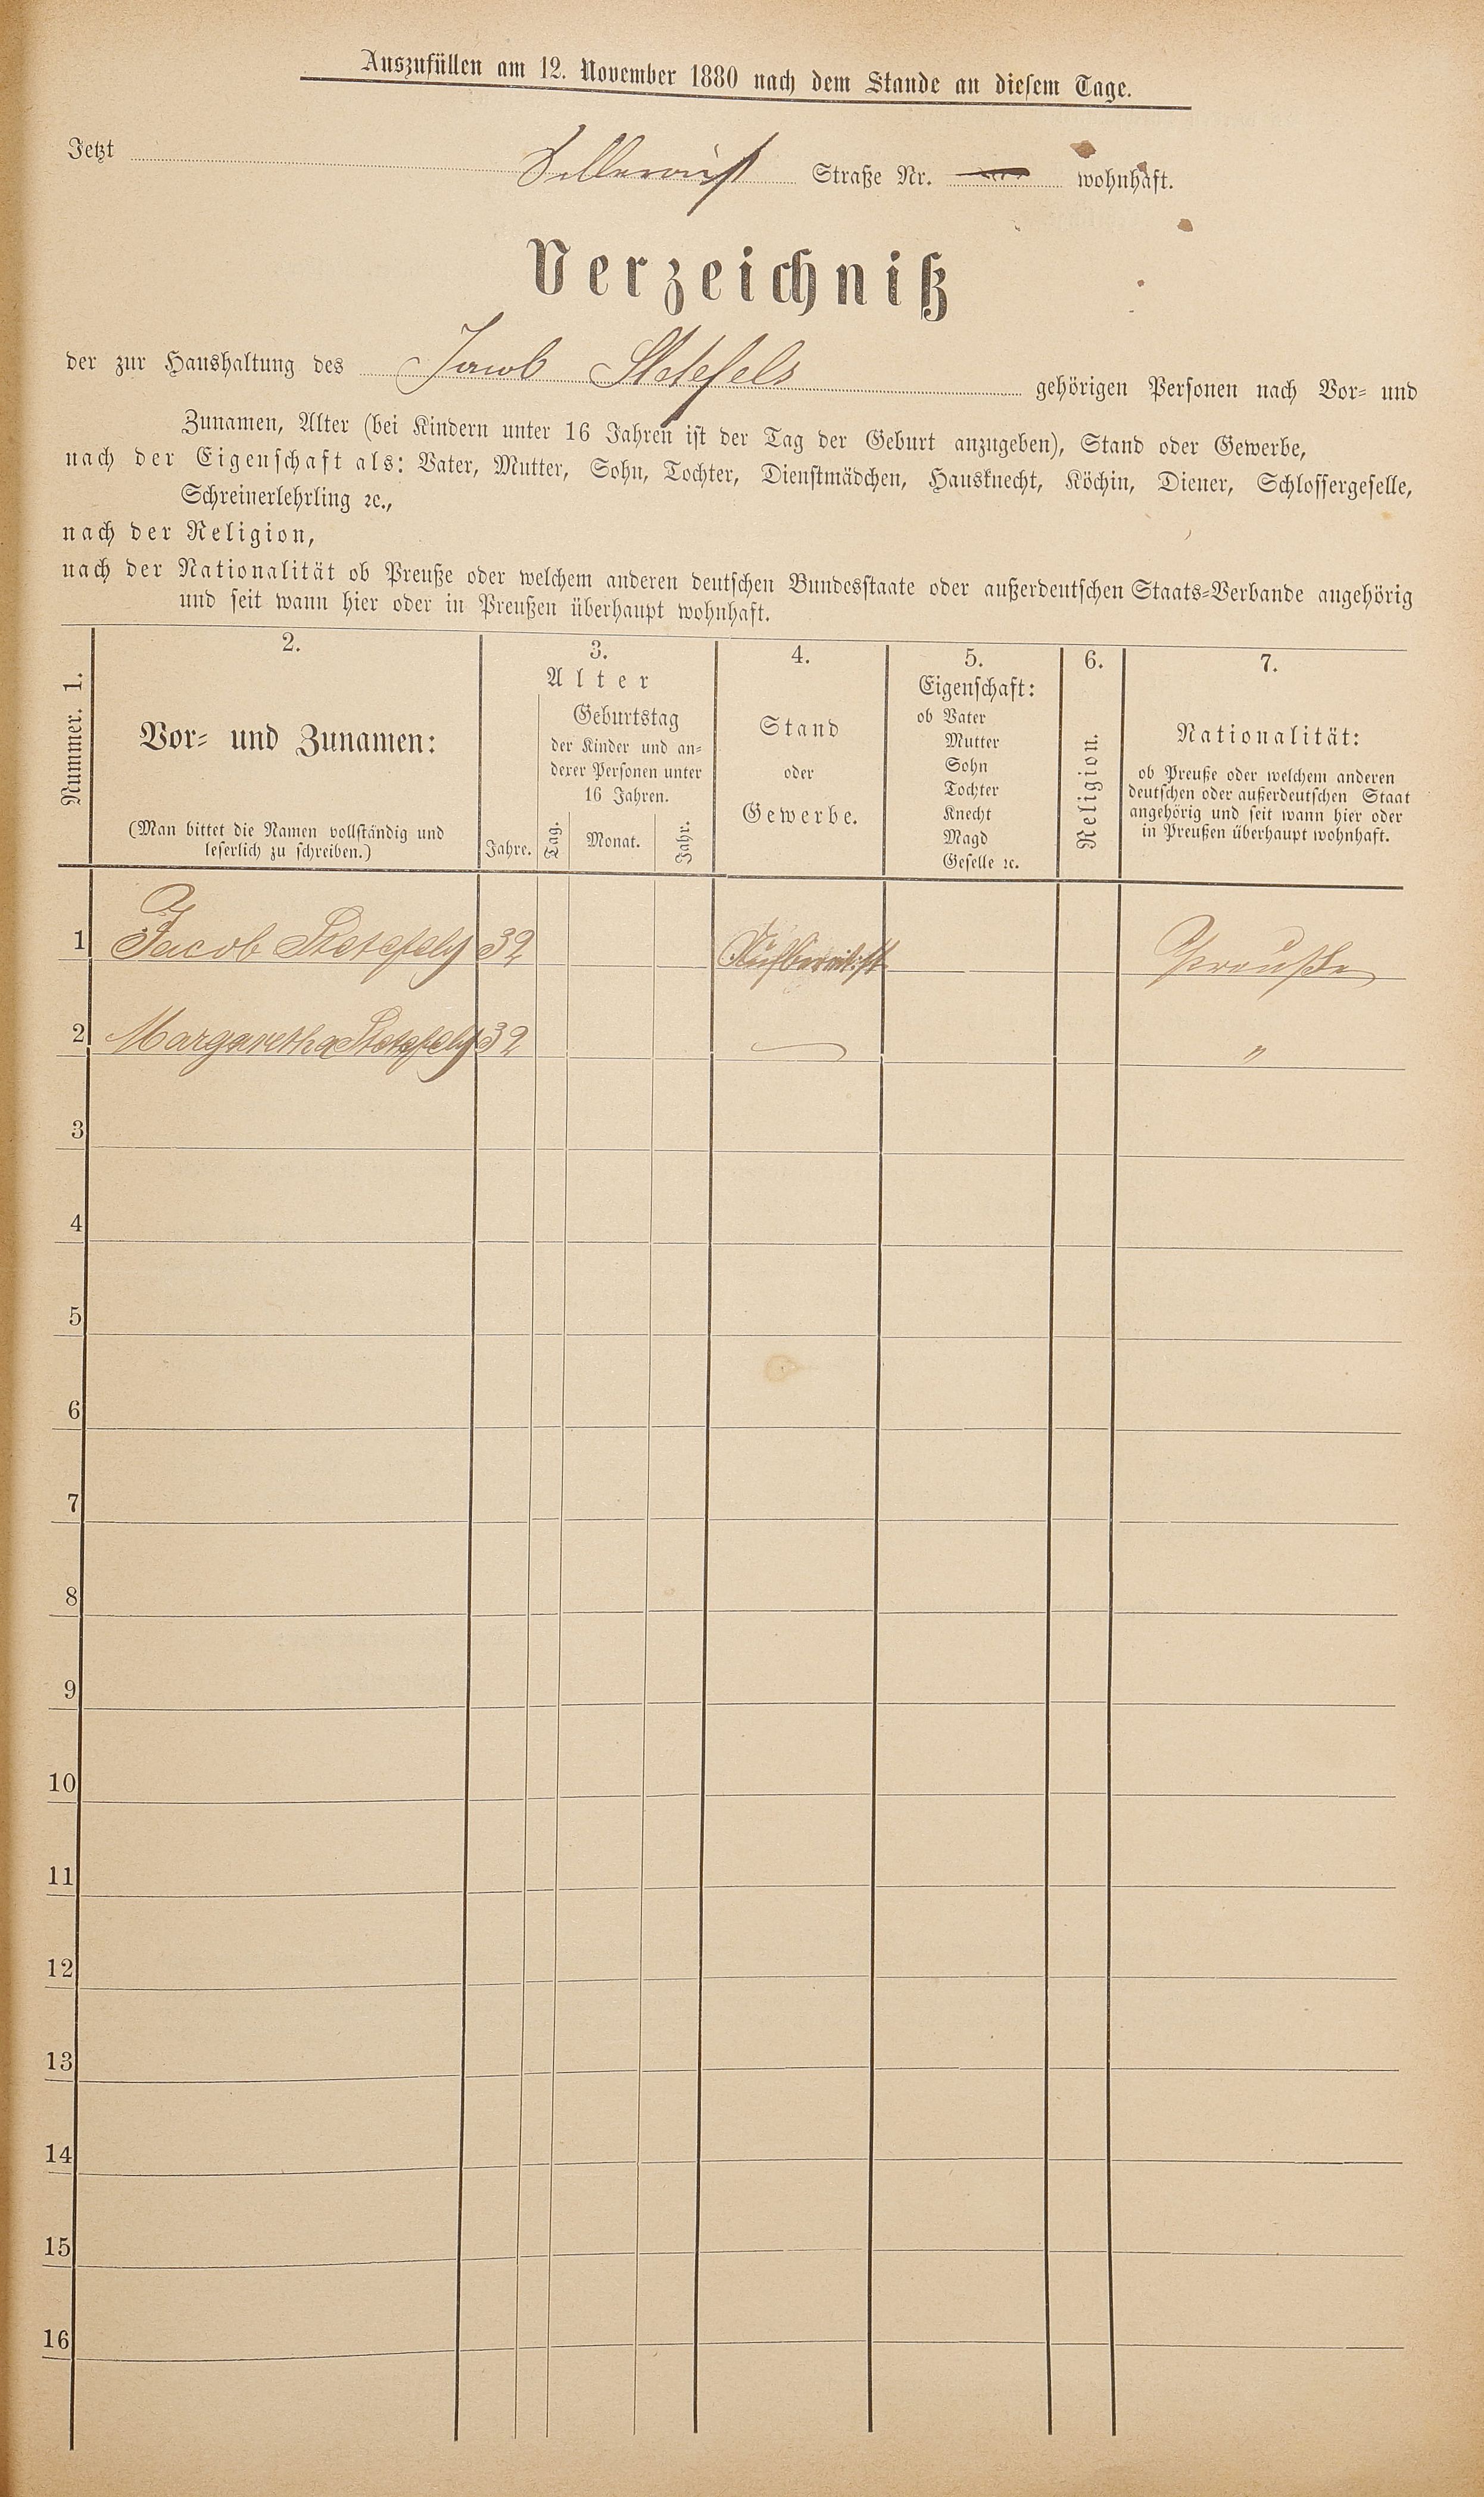 Auszufüllen am 12. November 1880 nach dem Stande an diesem Tage.
Jetzt Straße Nr. wohnhaft.
Verzeichniß
der zur Haushaltung des Jacob Stetefels gehörigen Personen nach Vor- und
Zunamen, Alter (bei Kindern unter 16 Jahren ist der Tag der Geburt anzugeben), Stand oder Gewerbe,
nach der Eigenschaft als: Vater, Mutter, Sohn, Tochter, Dienstmädchen, Hausknecht, Köchin, Diener, Schlossergeselle,
Schreinerlehrling ꝛc.,
nach der Religion,
nach der Nationalität ob Preuße oder welchem anderen deutschen Bundesstaate oder außerdeutschen Staats-Verbande angehörig
und seit wann hier oder in Preußen überhaupt wohnhaft.
Nummer. 1.
2.
Vor- und Zunamen:
(Man bittet die Namen vollständig und
leserlich zu schreiben.)
3.
Alter
Jahre.
Geburtstag
der Kinder und an-
derer Personen unter
16 Jahren.
Tag. Monat. Jahr.
4.
Stand
oder
Gewerbe.
5.
Eigenschaft:
ob Vater
Mutter
Sohn
Tochter
Knecht
Magd
Geselle ꝛc.
6.
Religion.
7.
Nationalität:
ob Preuße oder welchem anderen
deutschen oder außerdeutschen Staat
angehörig und seit wann hier oder
in Preußen überhaupt wohnhaft.
1 Jacob Stetefels 32 Preuße
2 Margaretha Stetefels 32 "
3
4
5
6
7
8
9
10
11
12
13
14
15
16